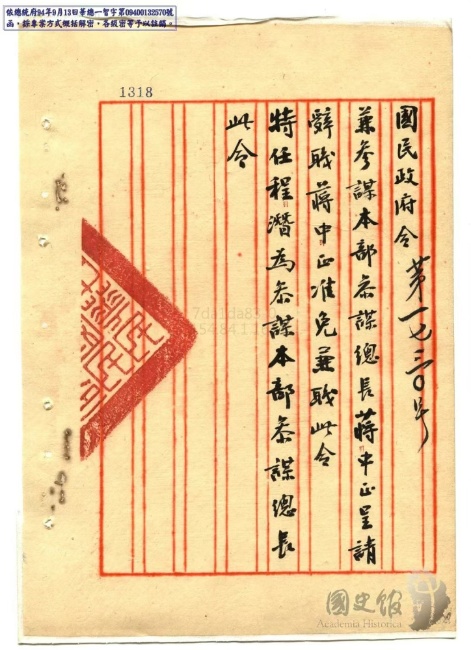 依總統府94年9月13日華總一智字第09400132570號
函，採專案方式概括解密，各級密等予以註銷。
1318
國民政府令 第一七三〇号
兼參謀本部參謀總長蔣中正呈請
辭職蔣中正准免兼職此令
特任程潛為參謀本部參謀總長
此令
國史館
Academia Historica